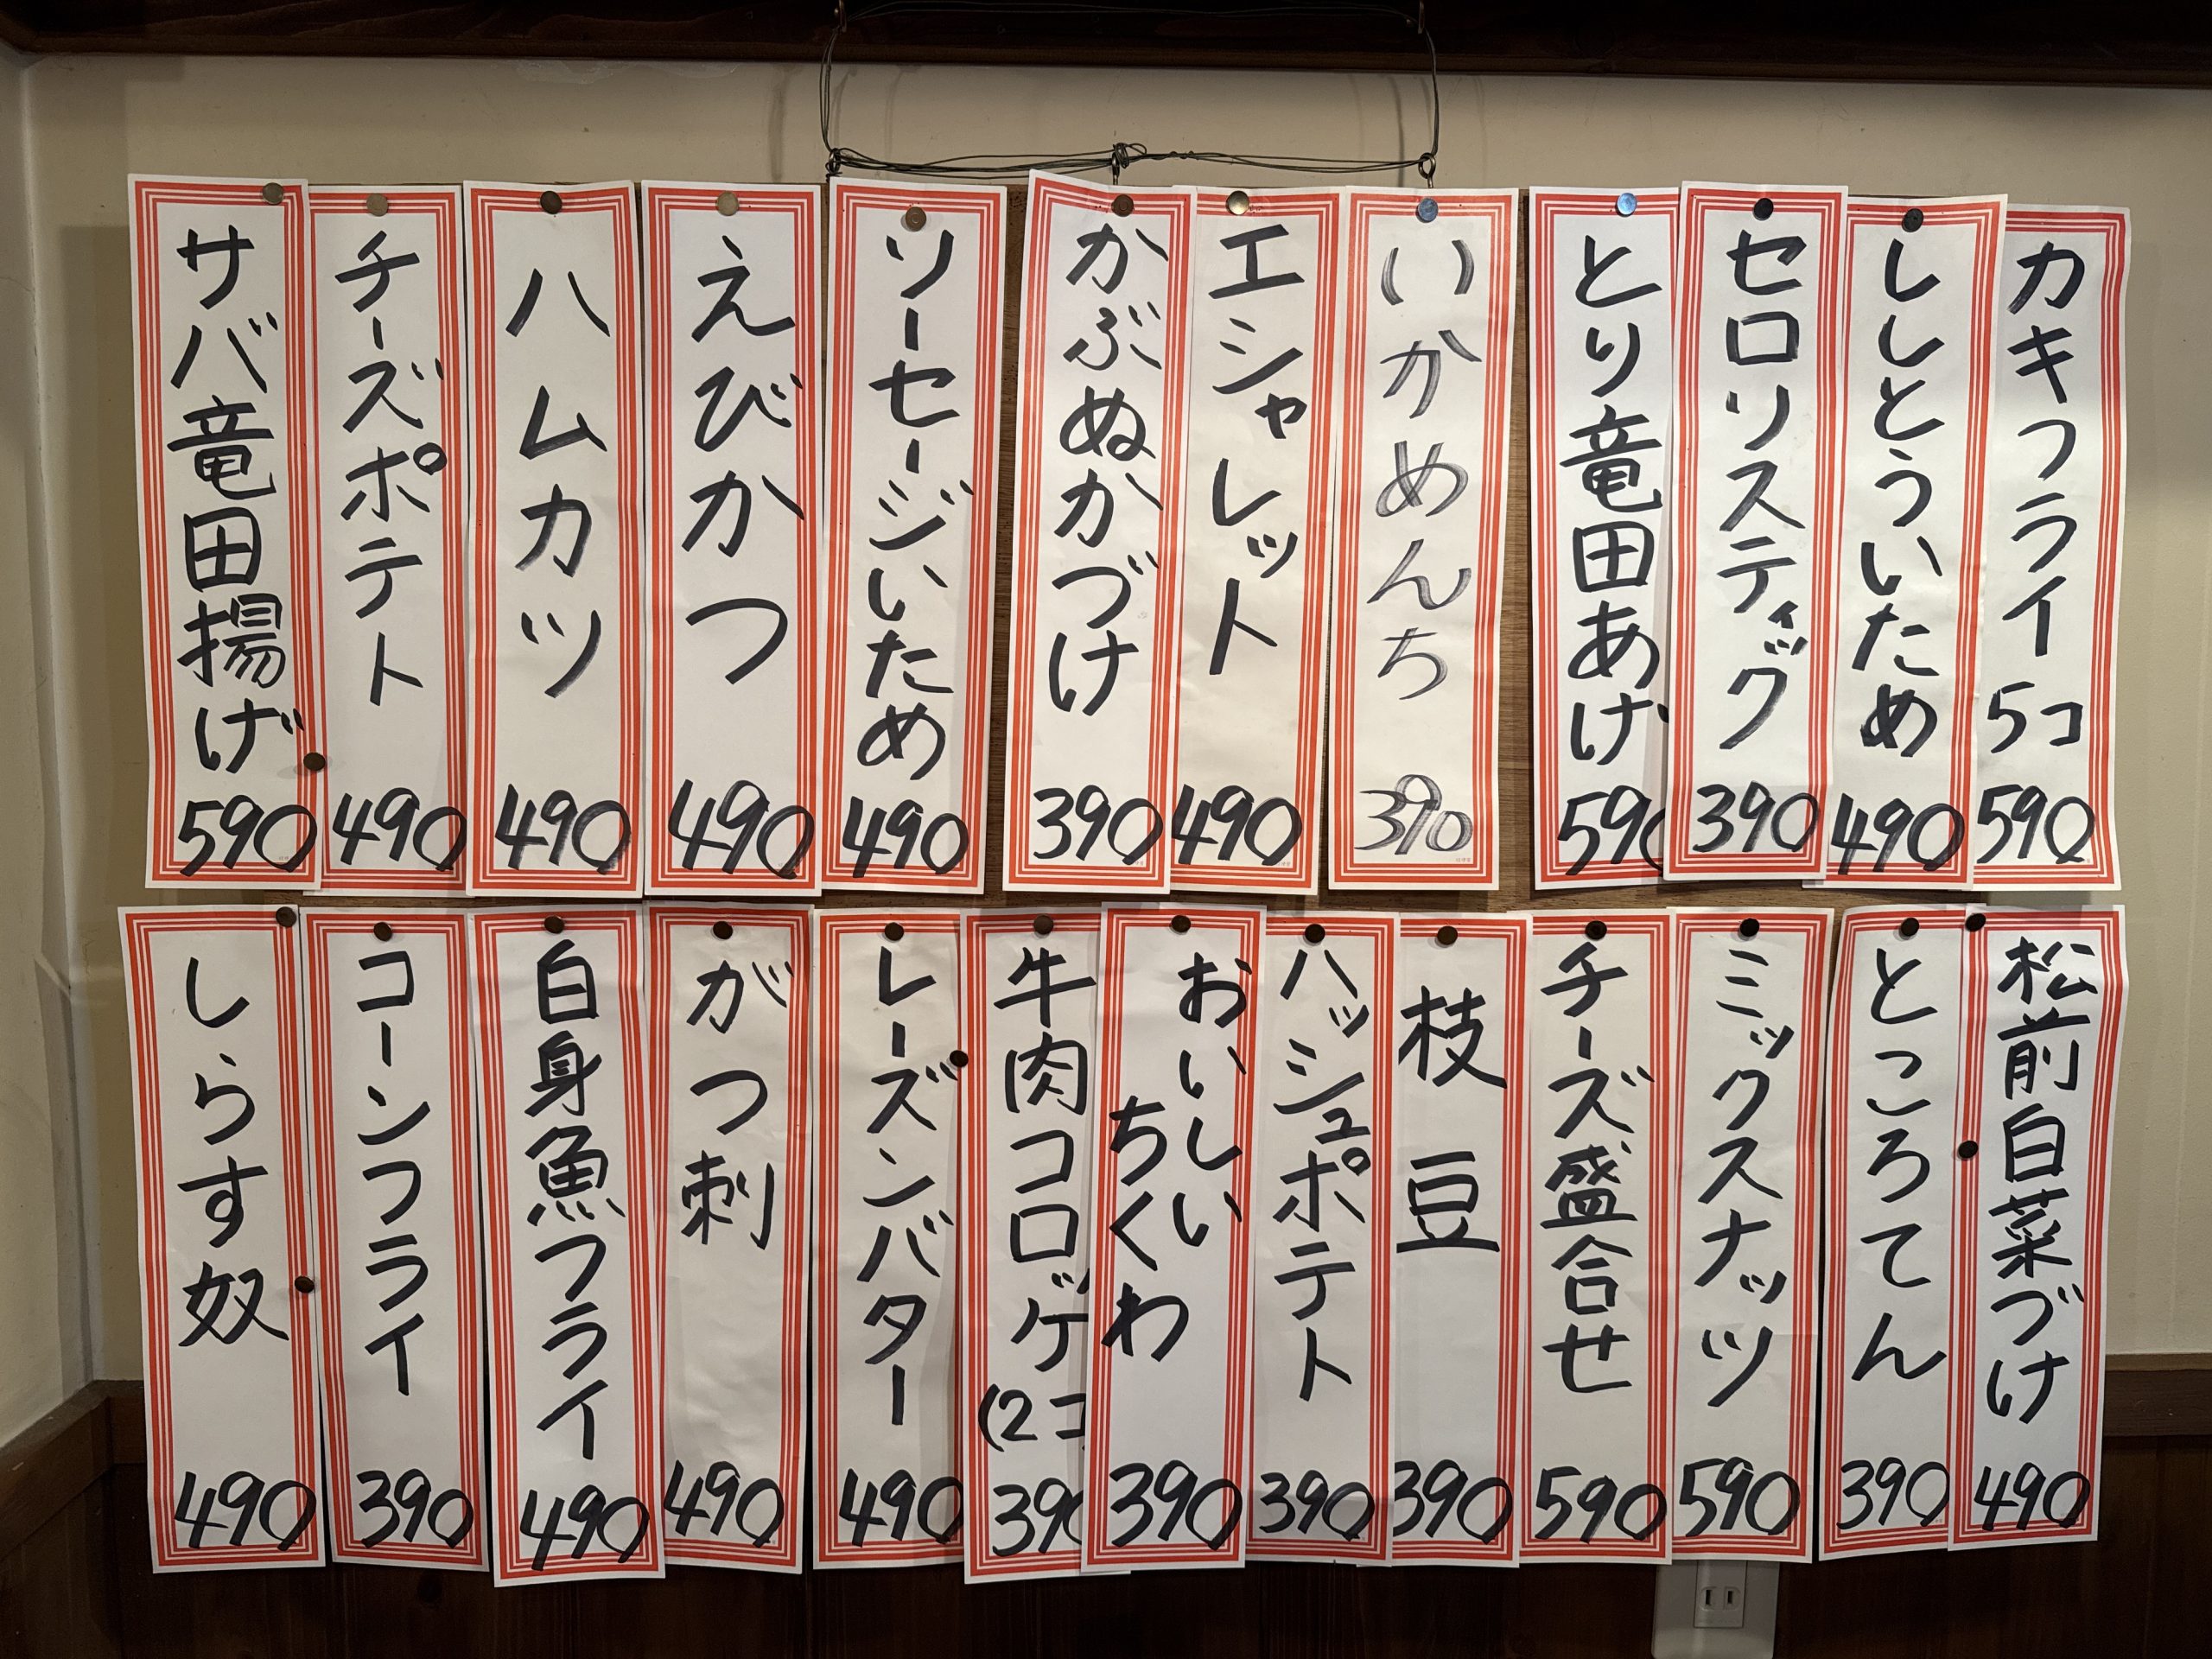 カキフライ 5コ
590
ししとういため
490
セロリスティック
390
とり竜田あげ
590
いかめんち
390
エシャレット
490
かぶぬかづけ
390
ソーセージいため
490
えびかつ
490
ハムカツ
490
チーズポテト
490
サバ竜田揚げ
590
松前白菜づけ
490
ところてん
390
ミックスナッツ
590
チーズ盛合せ
590
枝豆
390
ハッシュポテト
390
おいしい
ちくわ
390
牛肉コロッケ
(2コ
390
レーズンバター
490
がつ刺
490
白身魚フライ
490
コーンフライ
390
しらす奴
490